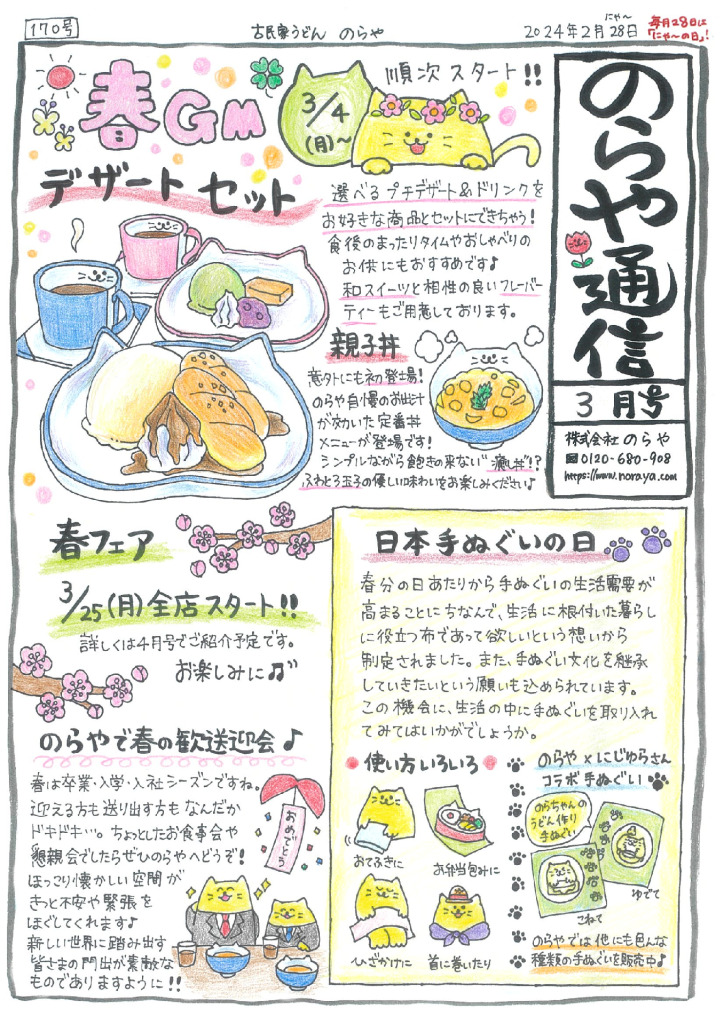 170号
古民家うどん のらや
にゃ〜
2024年2月28日
毎月28日は
「にゃ〜の日」!
のらや通信
3月号
株式会社 のらや
0120-680-908
https://www.noraya.com
春GM
3/4
(月)〜
順次スタート!!
デザートセット
選べるプチデザート&ドリンクを
お好きな商品とセットにできちゃう!
食後のまったりタイムやおしゃべりの
お供にもおすすめです♪
和スイーツと相性の良いフレーバー
ティーもご用意しております。
親子丼
意外にも初登場!
のらや自慢のお出汁
が効いた定番丼
メニューが登場です!
シンプルながら飽きの来ない"癒し丼"!?
ふわとろ玉子の優しい味わいをお楽しみください♪
春フェア
3/25(月)全店スタート!!
詳しくは4月号でご紹介予定です。
お楽しみに♫
のらやで春の歓送迎会♪
春は卒業・入学・入社シーズンですね。
迎える方も送り出す方もなんだか
ドキドキ…。ちょっとしたお食事会や
懇親会でしたらぜひのらやへどうぞ!
ほっこり懐かしい空間が
きっと不安や緊張を
ほぐしてくれます♪
新しい世界に踏み出す
皆さまの門出が素敵な
ものでありますように!!
おめでとう
日本手ぬぐいの日
春分の日あたりから手ぬぐいの生活需要が
高まることにちなんで、生活に根付いた暮らし
に役立つ布であって欲しいという想いから
制定されました。また、手ぬぐい文化を継承
していきたいという願いも込められています。
この機会に、生活の中に手ぬぐいを取り入れ
てみてはいかがでしょうか。
使い方いろいろ
おてふきに
お弁当包みに
ひざかけに
首に巻いたり
のらや×にじゆらさん
コラボ手ぬぐい
のらちゃんの
うどん作り
手ぬぐい
こねて
ゆでて
のらやでは他にも色んな
種類の手ぬぐいを販売中♪